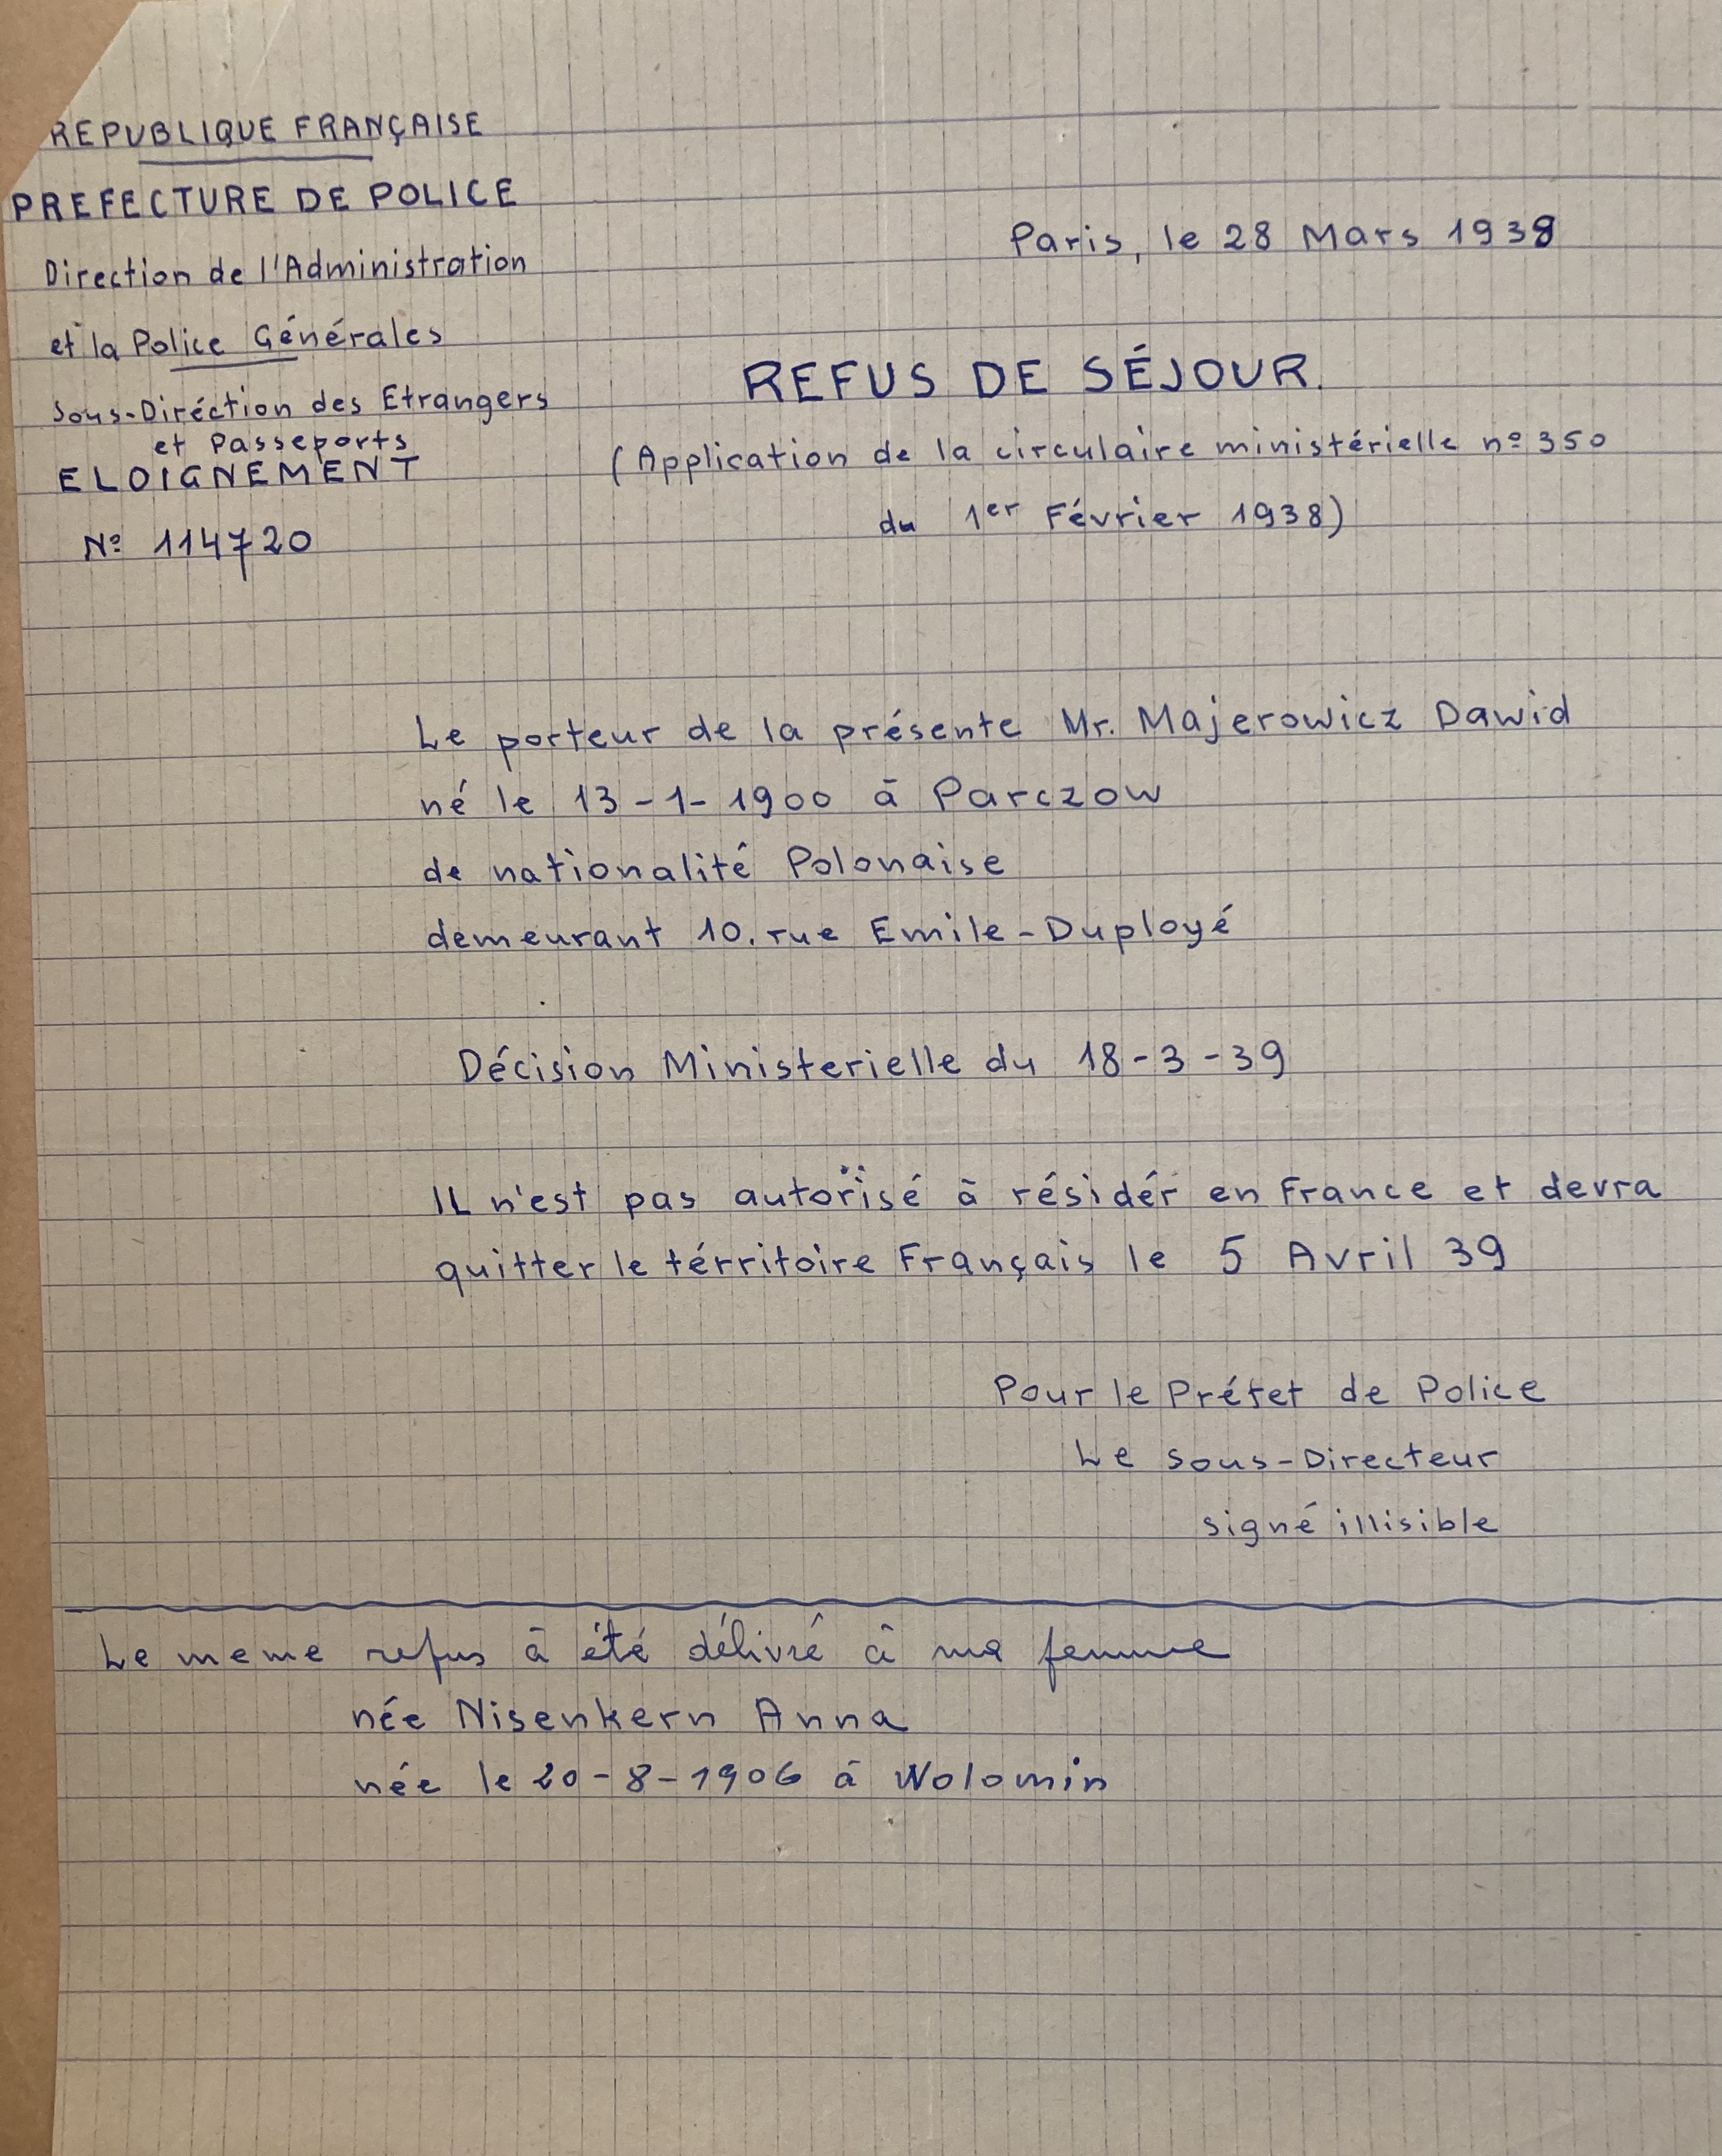 REPUBLIQUE FRANÇAISE
PREFECTURE DE POLICE
Direction de l'Administration
et la Police Générales
Sous-Diréction des Etrangers
et Passeports
ELOIGNEMENT
Nº 114720
Paris, le 28 Mars 1939
REFUS DE SÉJOUR.
(Application de la circulaire ministérielle nº 350
du 1er Février 1938)
Le porteur de la présente Mr. Majerowicz Dawid
né le 13-1-1900 à Parczow
de nationalité Polonaise
demeurant 10. rue Emile-Duployé
Décision Ministerielle du 18-3-39
IL n'est pas autorisé à résidér en France et devra
quitter le térritoire Français le 5 Avril 39
Pour le Préfet de Police
Le Sous-Directeur
signé illisible
Le meme refus à été délivré à ma femme
née Nisenkern Anna
née le 20-8-1906 à Wolomin